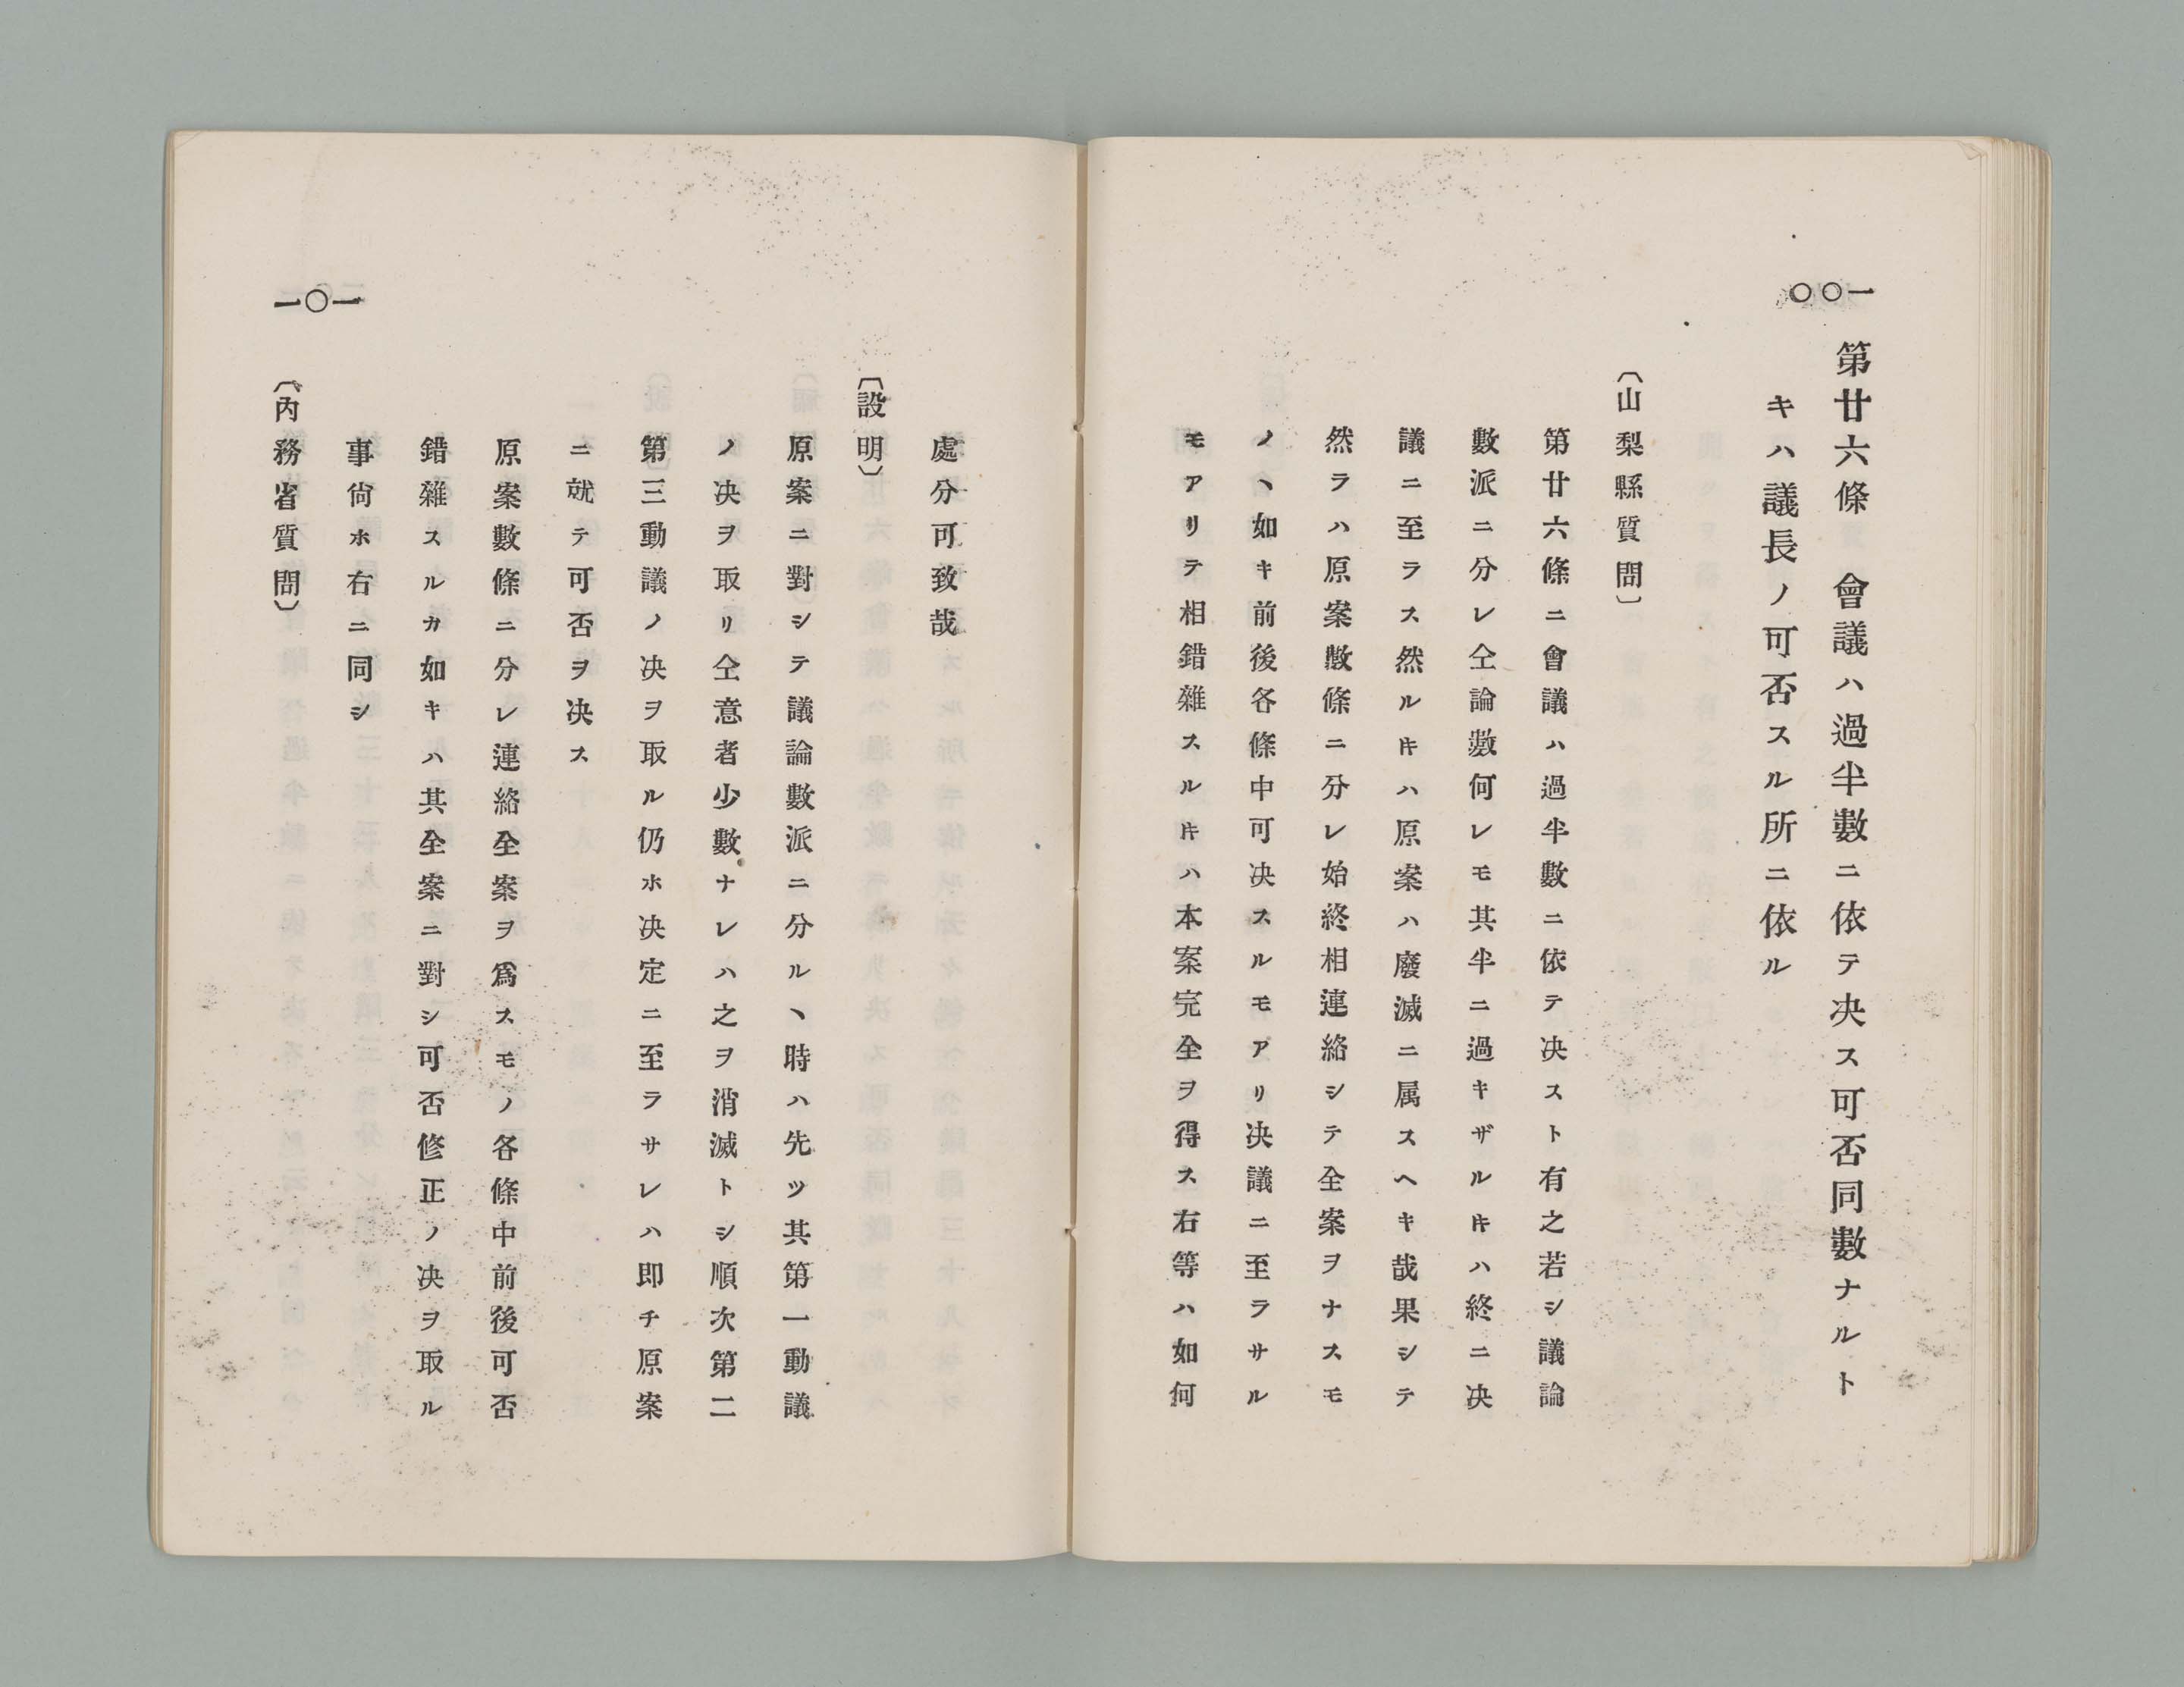 一〇〇
第廿六條　會議ハ過半數ニ依テ决ス可否同數ナルト
キハ議長ノ可否スル所ニ依ル
〔山梨縣質問〕
第廿六條ニ會議ハ過半數ニ依テ决スト有之若シ議論
數派ニ分レ仝論數何レモ其半ニ過キザルㇻハ終ニ决
議ニ至ラス然ルㇻハ原案ハ廢滅ニ属スヘキ哉果シテ
然ラハ原案數條ニ分レ始終相連絡シテ全案ヲナスモ
ノヽ如キ前後各條中可决スルモアリ决議ニ至ラサル
モアリテ相錯雜スルㇻハ本案完全ヲ得ス右等ハ如何
一〇一
處分可致哉
〔設明〕
原案ニ對シテ議論數派ニ分ルヽ時ハ先ツ其第一動議
ノ决ヲ取リ仝意者少數ナレハ之ヲ消滅トシ順次第二
第三動議ノ决ヲ取ル仍ホ决定ニ至ラサレハ即チ原案
ニ就テ可否ヲ决ス
原案數條ニ分レ連絡全案ヲ爲スモノ各條中前後可否
錯雜スルカ如キハ其全案ニ對シ可否修正ノ决ヲ取ル
事尙ホ右ニ同シ
〔內務省質問〕